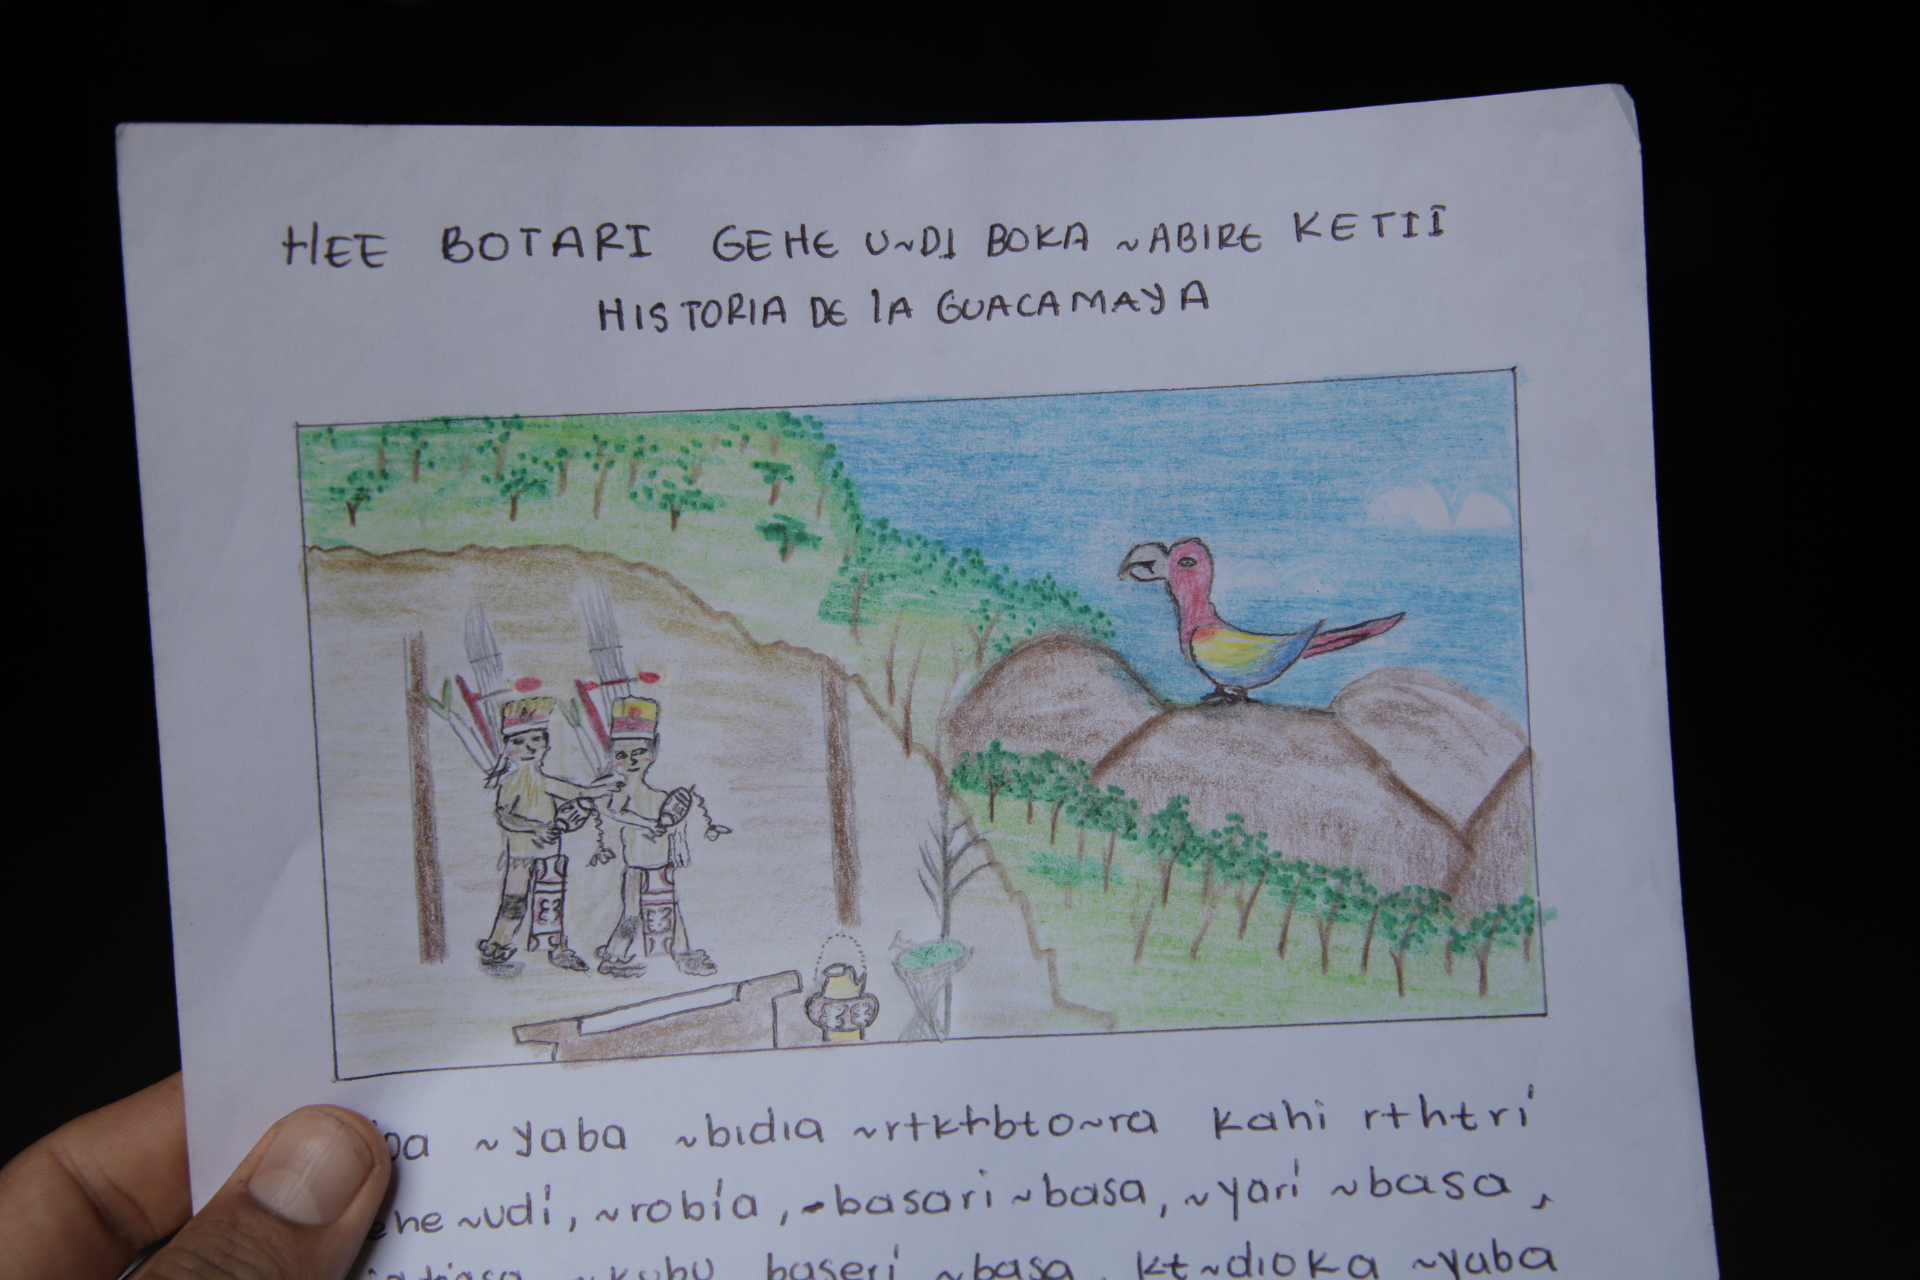 HEE BOTARI GEHE U~DI BOKA ~ABIRE KETII
HISTORIA DE lA GUACAMAYA
~yaba ~bidia ~rɨkɨbɨo~ra kahi rɨhɨrí
~udí, ~robía, ~basari ~basa, ~yarí ~basa,
~kubu baserí ~basa, kɨ~dioka ~yaba